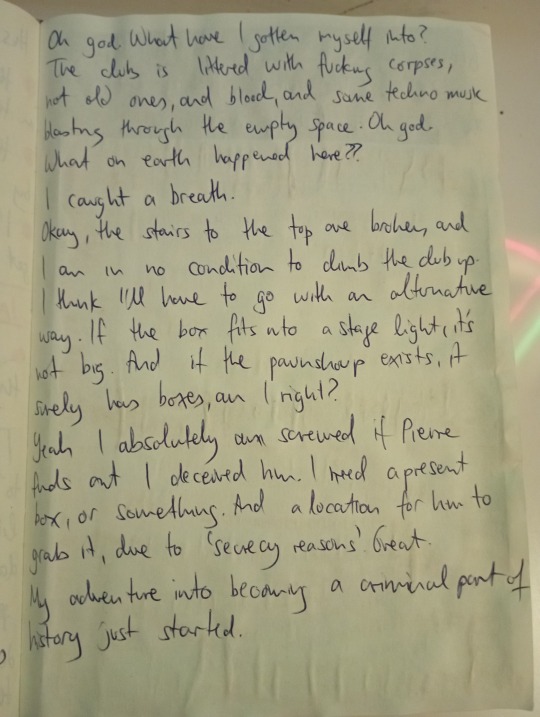 Oh god. What have I gotten myself into?
The club is littered with fucking corpses,
not old ones, and blood, and some techno musik
blasting through the empty space. Oh god.
What on earth happened here??
I caught a breath.
Okay, the stairs to the top are broken, and
I am in no condition to climb the club up.
I think I'll have to go with an alternative
way. If the box fits into a stage light, it's
not big. And if the pawnshoup exists, it
surely has boxes, am I right?
Yeah I absolutely am screwed if Pierre
finds out I deceived him. I need a present
box, or something. And a location for him to
grab it, due to 'secrecy reasons'. Great.
My adventure into becoming a criminal part of
history just started.